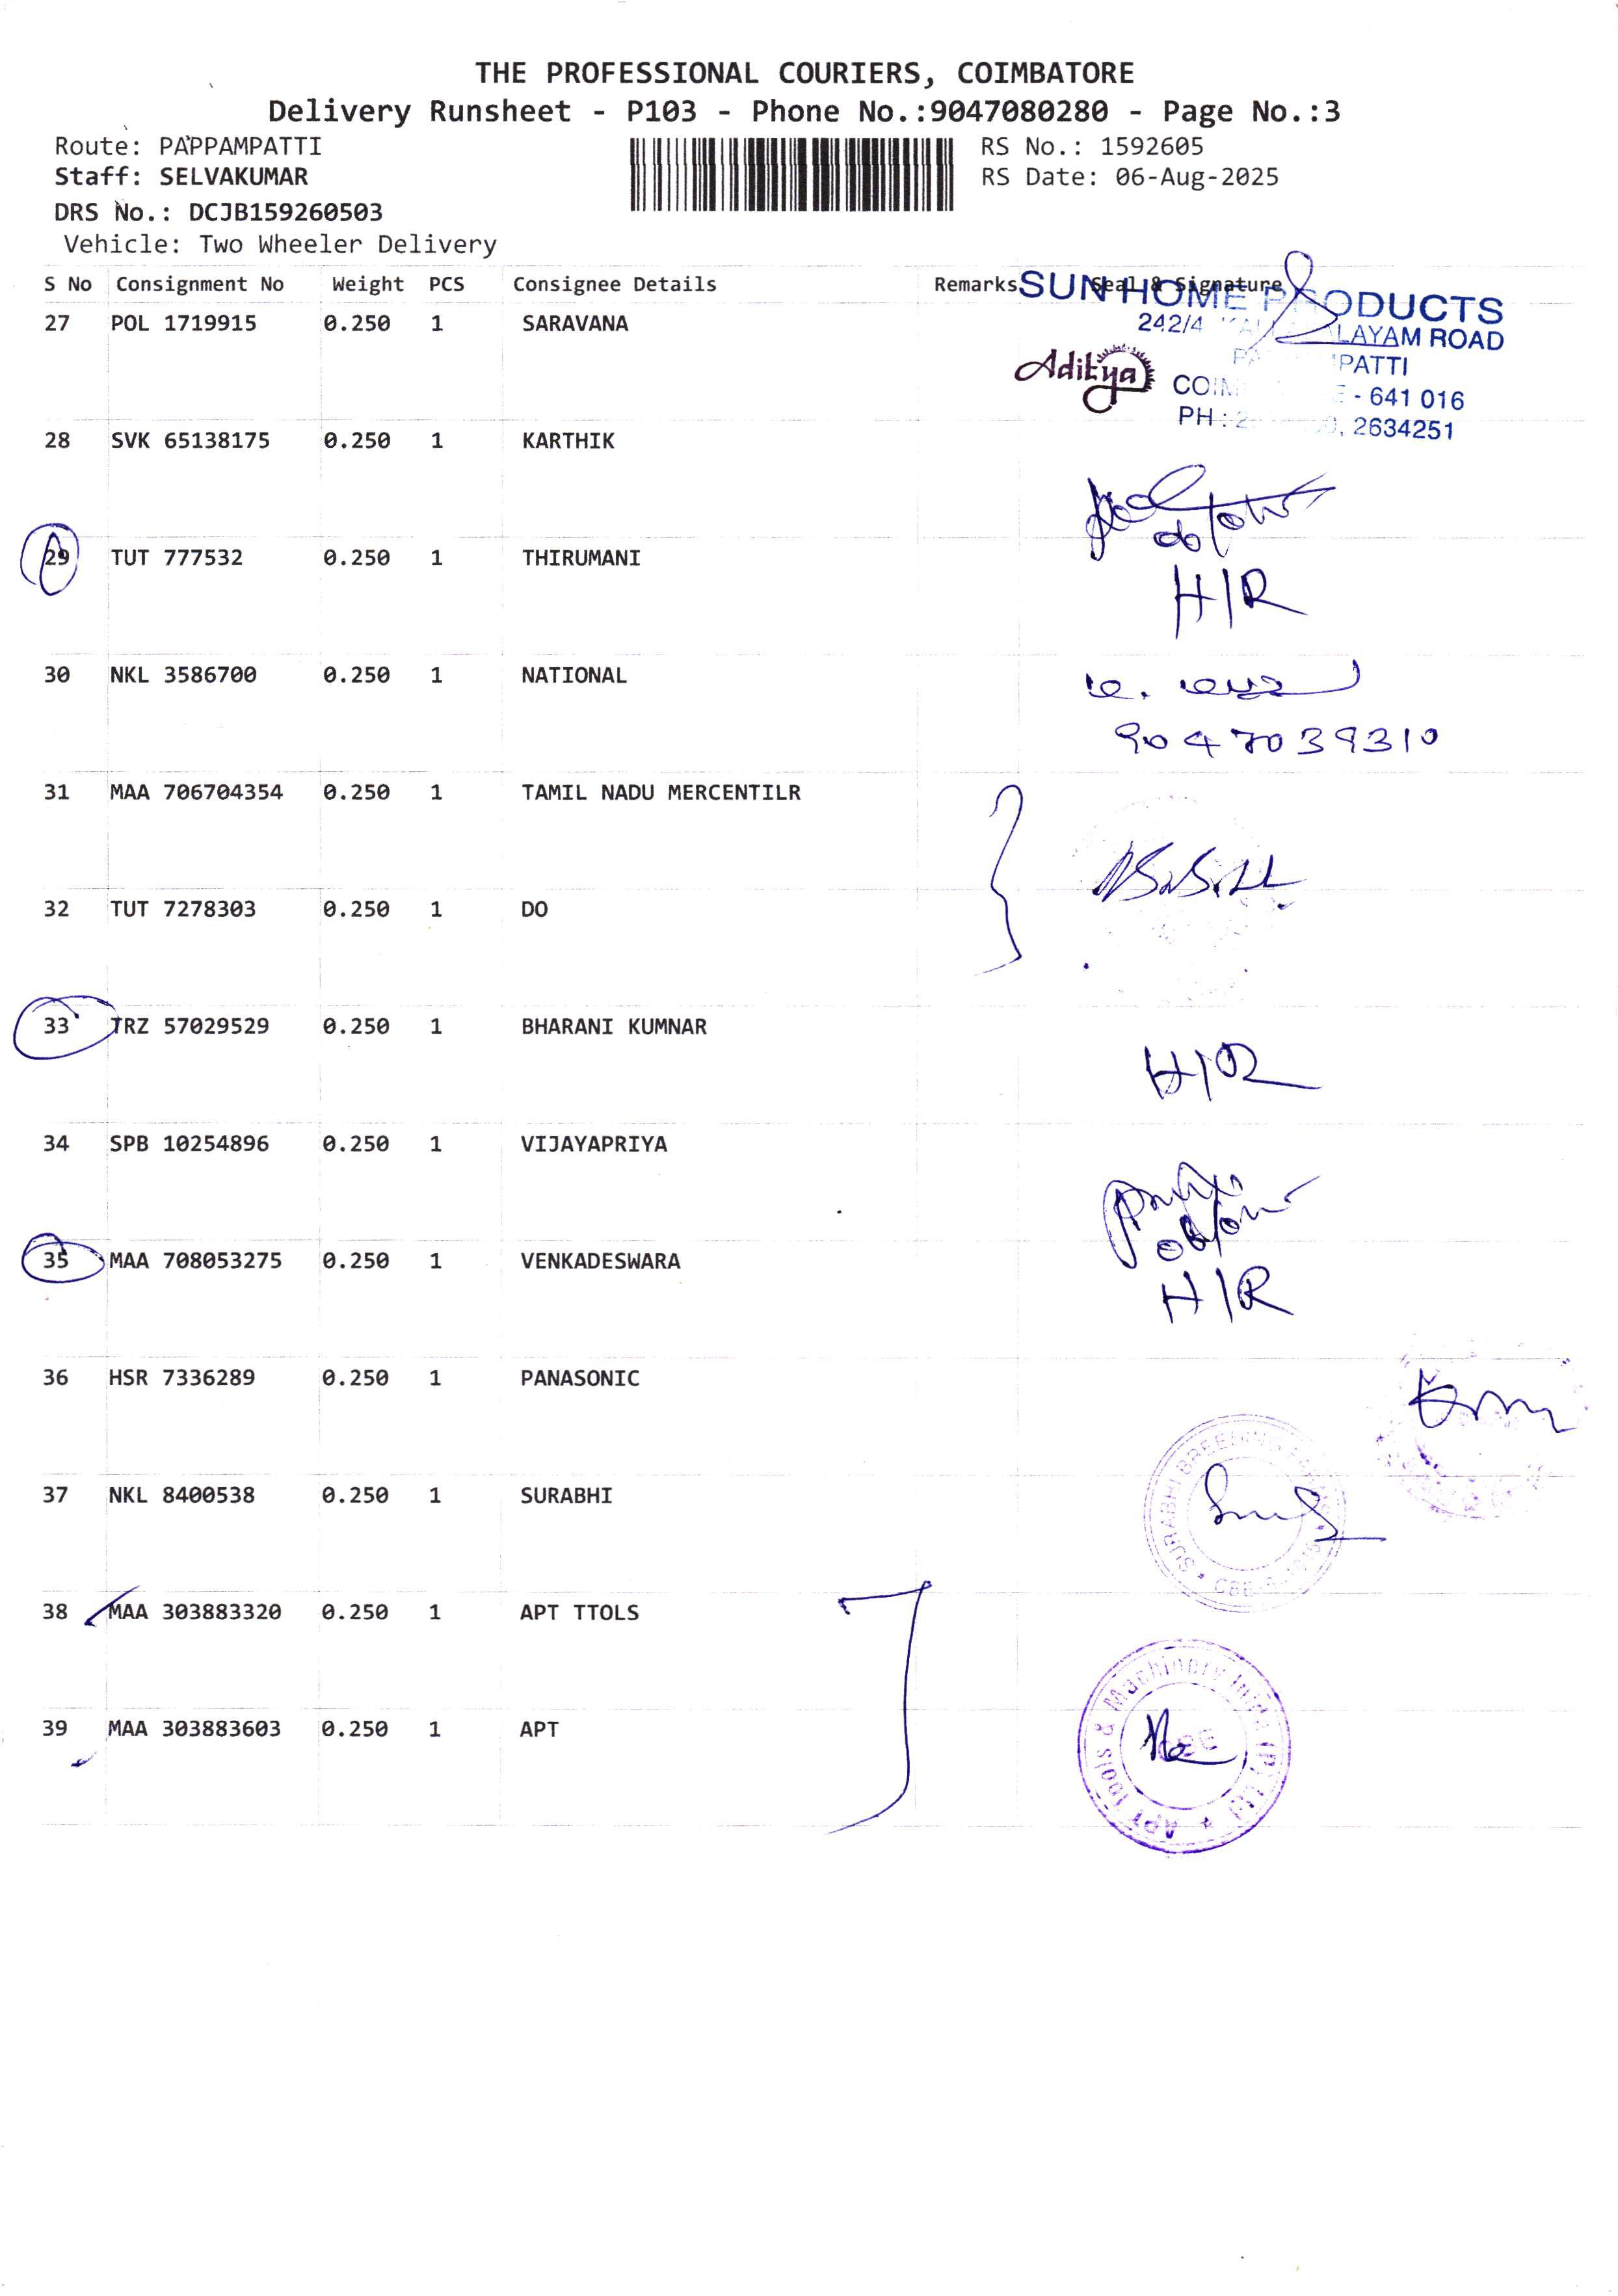 THE PROFESSIONAL COURIERS, COIMBATORE
Delivery Runsheet - P103 - Phone No.:9047080280 - Page No.:3
Route: PAPPAMPATTI
RS No.: 1592605
Staff: SELVAKUMAR
RS Date: 06-Aug-2025
DRS No.: DCJB159260503
Vehicle: Two Wheeler Delivery
S No Consignment No Weight PCS Consignee Details Remarks Seal & Signature
SUN HOME PRODUCTS
27 POL 1719915 0.250 1 SARAVANA
242/4 LAYAM ROAD
PATTI
Aditya
- 641 016
PH : 2 , 2634251
28 SVK 65138175 0.250 1 KARTHIK
29 TUT 777532 0.250 1 THIRUMANI
H/R
30 NKL 3586700 0.250 1 NATIONAL
9047039310
31 MAA 706704354 0.250 1 TAMIL NADU MERCENTILR
32 TUT 7278303 0.250 1 DO
33 TRZ 57029529 0.250 1 BHARANI KUMNAR
H/R
34 SPB 10254896 0.250 1 VIJAYAPRIYA
35 MAA 708053275 0.250 1 VENKADESWARA
H/R
36 HSR 7336289 0.250 1 PANASONIC
37 NKL 8400538 0.250 1 SURABHI
SURABHI BREEDING
38 MAA 303883320 0.250 1 APT TTOLS
39 MAA 303883603 0.250 1 APT
APT Tools & Machinery India (P) Ltd